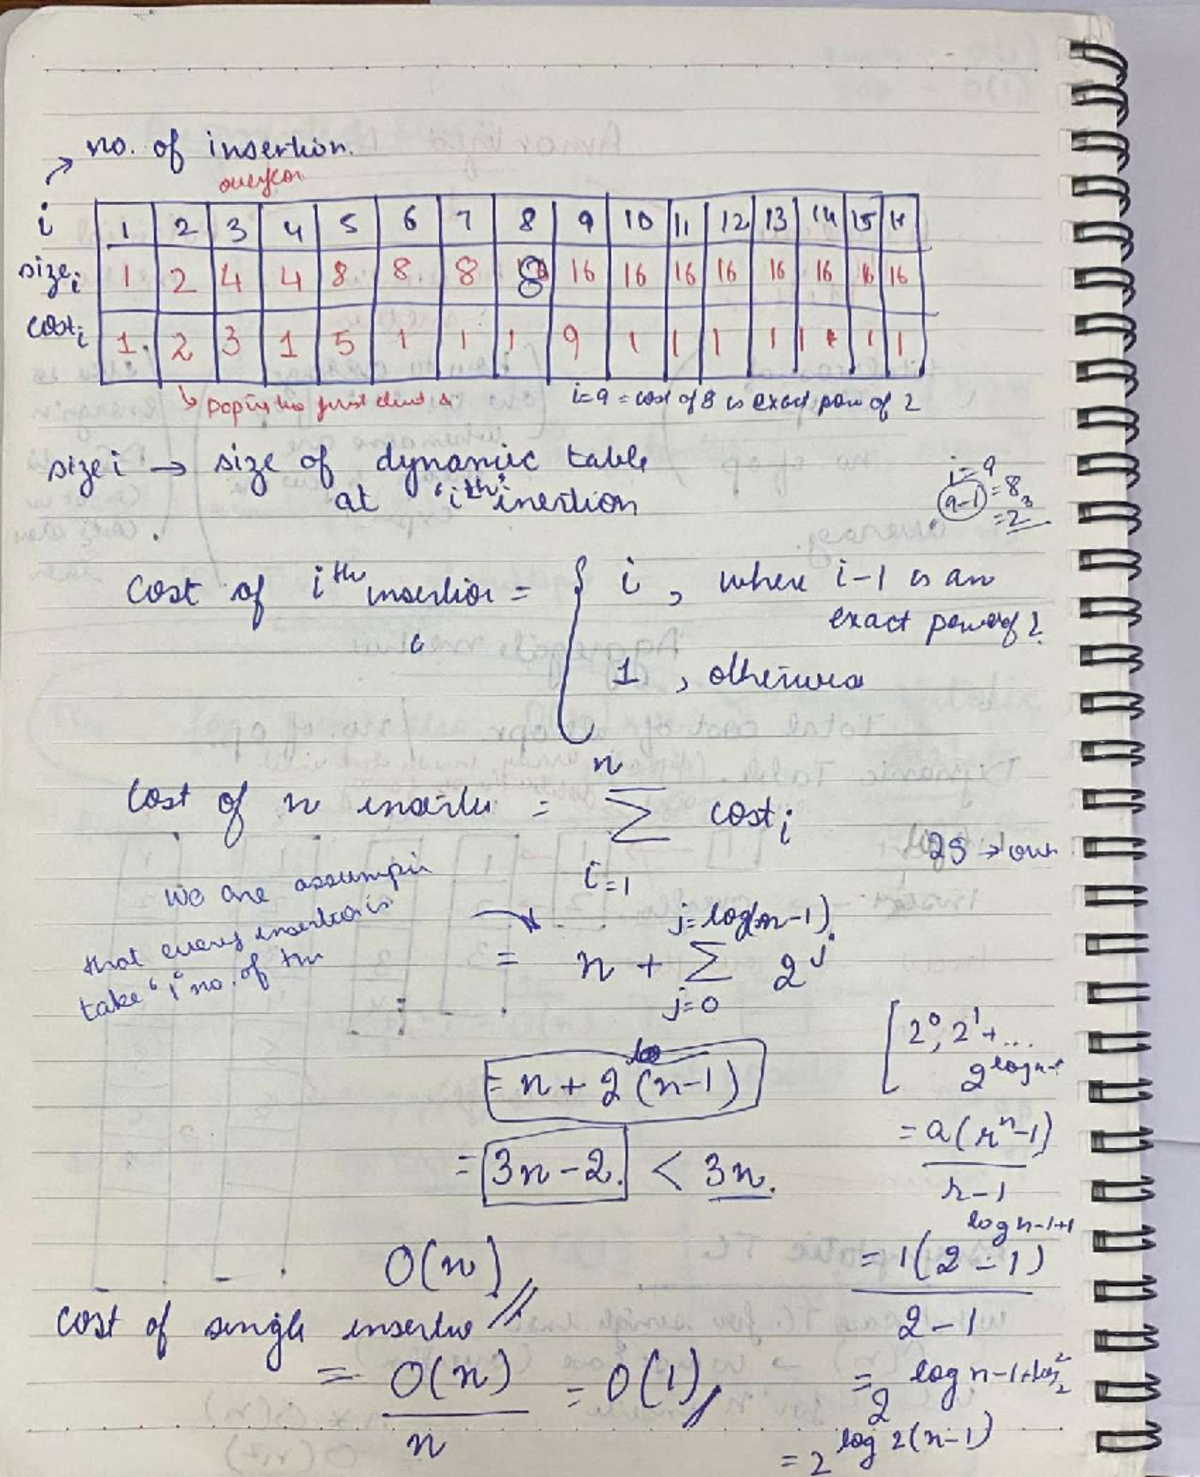 no. of insertion.
i 1 2 3 4 5 6 7 8 9 10 11 12 13 14 15 16
size i 1 2 4 4 8 8 8 8 16 16 16 16 16 16 16 16
cost i 1 2 3 1 5 1 1 1 9 1 1 1 1 1 1 1
i=9 = cost of 8 is exact pow of 2
size i → size of dynamic table
at 'ith' inertion
i=9
9-1 = 8
= 2^3
Cost of i^th insertion = { i , where i-1 is an
exact power of 2
1 , otherwise
Cost of n = n Σ i=1 cost i
25 →
we are
that every insertion is
take "1" no. of
= n + j=log(n-1) Σ j=0 2^j
[ 2^0, 2^1 + ...
2^log n-1
= n + 2 (n-1)
= a(r^n-1)
r-1
= 3n-2. < 3n.
O(n)
= 1(2^log n-1+1 - 1)
2-1
Cost of single
= O(n) = O(1)
n
= 2^log n-1+log 2 2
= 2^log 2(n-1)